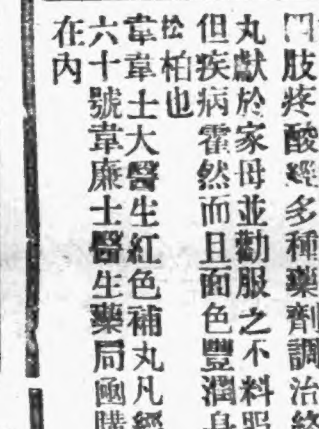 肢疼酸經多種藥劑調治
丸獻於家母並勸服之不料服
但疾病霍然而且面色豐潤身
松柏也
韋韋士大醫生紅色補丸凡經
六十號韋廉士醫生藥局函購
在內